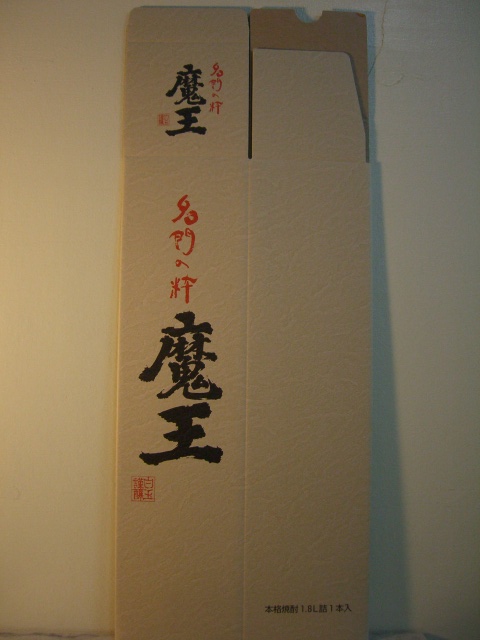 名門の粋
魔王
名門の粋
魔王
白玉
謹醸
本格焼酎1.8L詰1本入